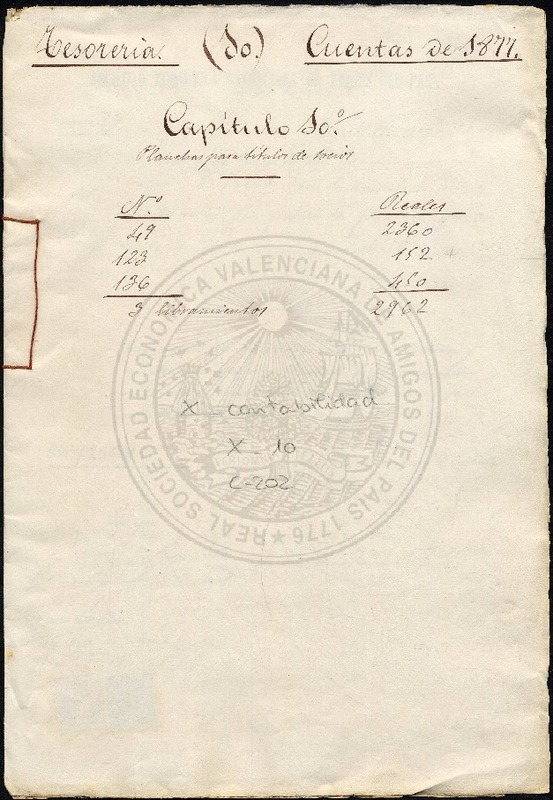 Tesoreria. (10) Cuentas de 1877.
Capítulo 10º.
Planchas para títulos de socios
Nº Reales
49 2360
123 152
136 450
3 libramientos 2962
X - contabilidad
X - 10
C-202
REAL SOCIEDAD ECONOMICA VALENCIANA DE AMIGOS DEL PAIS 1776 ★